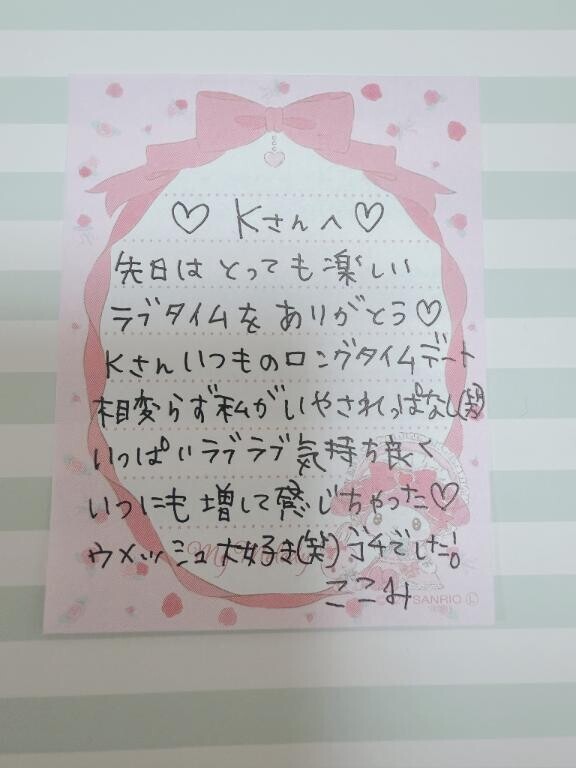 ♡ Kさんへ♡
先日はとっても楽しい
ラブタイムをありがとう♡
Kさんいつものロングタイムデート
相変らず私がいやされっぱなし(笑)
いっぱいラブラブ気持ち良く
いつにも増して感じちゃった♡
ウメッシュ大好き(笑)ゴチでした!!
ここみ
My Melody
SANRIO